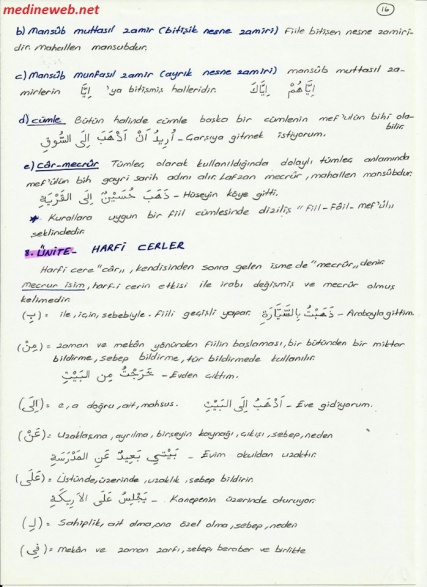 medineweb.net
16
b) Mansûb muttasıl zamir (bitişik nesne zamiri) Fiile bitişen nesne zamiri-
dir. Mahallen mansubdur.
c) Mansûb munfasıl zamir (ayrık nesne zamiri) mansûb muttasıl za-
mirlerin إِيَّا 'ya bitişmiş halleridir. إِيَّاكَ إِيَّاهُمْ
d) cümle Bütün halinde cümle başka bir cümlenin mef'ulün bihi ola-
bilir.
أُرِيدُ أَنْ أَذْهَبَ إِلَى السُّوقِ - Çarşıya gitmek istiyorum.
e) Câr-mecrûr Tümleç olarak kullanıldığında dolaylı tümleç anlamında
mef'ulün bih gayri sarih adını alır. Lafzan mecrur, mahallen mansubdur.
ذَهَبَ حُسَيْنٌ إِلَى الْقَرْيَةِ - Hüseyin köye gitti.
* Kurallara uygun bir fiil cümlesinde diziliş "Fiil-Fâil-mef'ul"
şeklindedir.
8. ÜNİTE - HARFİ CERLER
Harfi cere "câr", kendisinden sonra gelen isme de "mecrûr" denir.
Mecrur isim, harf-i cerin etkisi ile irabı değişmiş ve mecrûr olmuş
kelimedir.
(بِ) = ile, için, sebebiyle. Fiili geçişli yapar. ذَهَبْتُ بِالسَّيَّارَةِ - Arabayla gittim.
(مِنْ) = zaman ve mekân yönünden fiilin başlaması, bir bütünden bir miktar
bildirme, sebep bildirme, tür bildirmede kullanılır.
خَرَجْتُ مِنَ الْبَيْتِ - Evden çıktım.
(إِلَى) = e, a doğru, ait, mahsus. أَذْهَبُ إِلَى الْبَيْتِ - Eve gidiyorum.
(عَنْ) = Uzaklaşma, ayrılma, birşeyin kaynağı, çıkışı, sebep, neden
بَيْتِي بَعِيدٌ عَنِ الْمَدْرَسَةِ - Evim okuldan uzaktır.
(عَلَى) = Üstünde, üzerinde, uzaklık, sebep bildirir.
يَجْلِسُ عَلَى الْأَرِيكَةِ - Kanepenin üzerinde oturuyor.
(لِ) = Sahiplik, ait olma, ona özel olma, sebep, neden
(فِي) = Mekân ve zaman zarfı, sebep, beraber ve birlikte